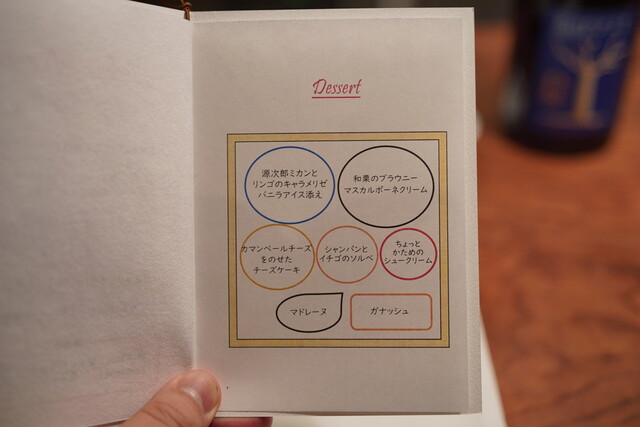 Dessert
源次郎ミカンと
リンゴのキャラメリゼ
バニラアイス添え
和栗のブラウニー
マスカルポーネクリーム
カマンベールチーズ
をのせた
チーズケーキ
シャンパンと
イチゴのソルベ
ちょっと
かための
シュークリーム
マドレーヌ
ガナッシュ